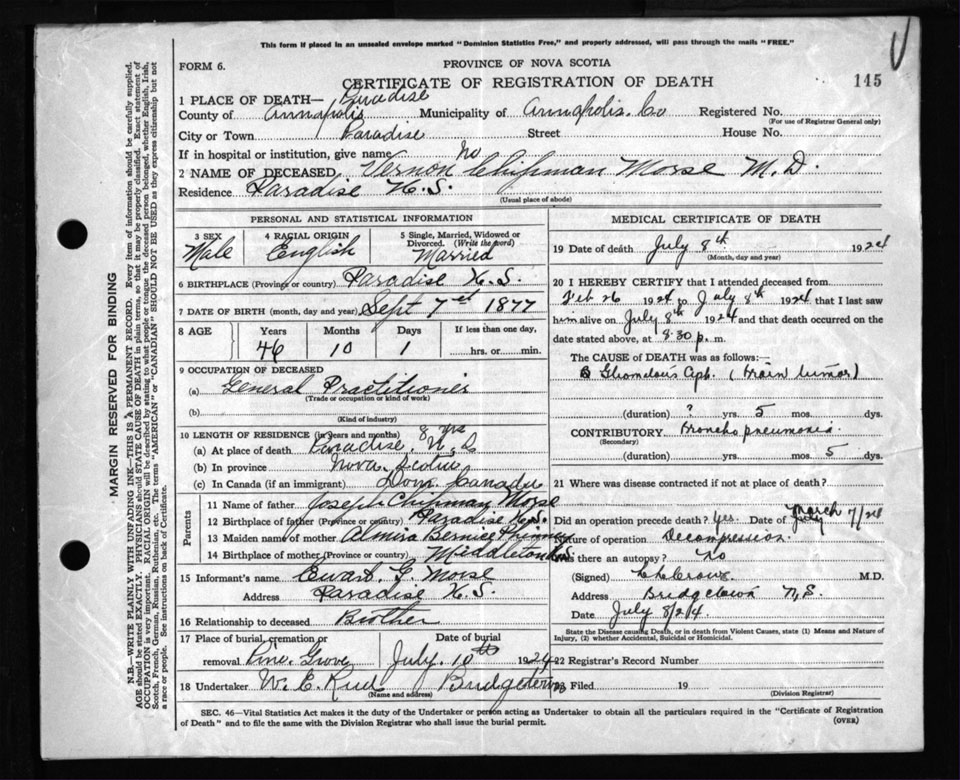 This form if placed in an unsealed envelope marked "Dominion Statistics Free," and properly addressed, will pass through the mails "FREE."
FORM 6.
PROVINCE OF NOVA SCOTIA
CERTIFICATE OF REGISTRATION OF DEATH
145
1 PLACE OF DEATH— Paradise
County of Annapolis Municipality of Annapolis. Co Registered No.
(For use of Registrar General only)
City or Town Paradise Street House No.
If in hospital or institution, give name No
2 NAME OF DECEASED Vernon Chipman Morse M.D.
Residence Paradise N.S.
(Usual place of abode)
PERSONAL AND STATISTICAL INFORMATION
3 SEX 4 RACIAL ORIGIN 5 Single, Married, Widowed or Divorced. (Write the word)
Male English Married
6 BIRTHPLACE (Province or country) Paradise N.S.
7 DATE OF BIRTH (month, day and year) Sept 7 1877
8 AGE Years Months Days If less than one day,
46 10 1 hrs. or min.
9 OCCUPATION OF DECEASED
(a) General Practitioner
(Trade or occupation or kind of work)
(b)
(Kind of industry)
10 LENGTH OF RESIDENCE (in years and months) 8 yrs
(a) At place of death Paradise, N.S
(b) In province Nova Scotia
(c) In Canada (if an immigrant) Dom. Canada
Parents
11 Name of father Joseph Chipman Morse
12 Birthplace of father (Province or country) Paradise N.S.
13 Maiden name of mother Almira Bernice
14 Birthplace of mother (Province or country) Middleton N.S.
15 Informant's name Ewart. G. Morse
Address Paradise N.S.
16 Relationship to deceased Brother
17 Place of burial, cremation or Date of burial
removal Pine Grove July 10th 1924
18 Undertaker W. E. Bridgetown
(Name and address)
MEDICAL CERTIFICATE OF DEATH
19 Date of death July 8th 1924
(Month, day and year)
20 I HEREBY CERTIFY that I attended deceased from
Feb 26 1924 to July 8th 1924 that I last saw
him alive on July 8th 1924 and that death occurred on
date stated above, at 8:30 p. m.
The CAUSE of DEATH was as follows:—
(Brain tumor)
(duration) ? yrs. 5 mos. dys.
CONTRIBUTORY Broncho pneumonia.
(Secondary)
(duration) yrs. mos. 5 dys.
21 Where was disease contracted if not at place of death?
Did an operation precede death? Yes. Date of July March 7/24
Nature of operation Decompression.
Was there an autopsy? No
(Signed) M.D.
Address Bridgetown N.S.
Date July 8/24
State the Disease causing Death, or in death from Violent Causes, state (1) Means and Nature of
Injury, (2) whether Accidental, Suicidal or Homicidal.
22 Registrar's Record Number
23 Filed 19
(Division Registrar)
SEC. 46—Vital Statistics Act makes it the duty of the Undertaker or person acting as Undertaker to obtain all the particulars required in the "Certificate of Registration
of Death" and to file the same with the Division Registrar who shall issue the burial permit.
(OVER)
MARGIN RESERVED FOR BINDING
N.B.—WRITE PLAINLY WITH UNFADING INK—THIS IS A PERMANENT RECORD. Every item of information should be carefully supplied.
AGE should be stated EXACTLY. PHYSICIANS should STATE CAUSE OF DEATH in plain terms, so that it may be properly classified. Exact statement of
OCCUPATION is very important. RACIAL ORIGIN will be described by stating to what people or tongue the deceased person belonged, whether English, Irish,
Scotch, French, German, Russian, Ruthenian, etc. The terms "AMERICAN" or "CANADIAN" SHOULD NOT BE USED as they express citizenship but not
a race or people. See instructions on back of Certificate.